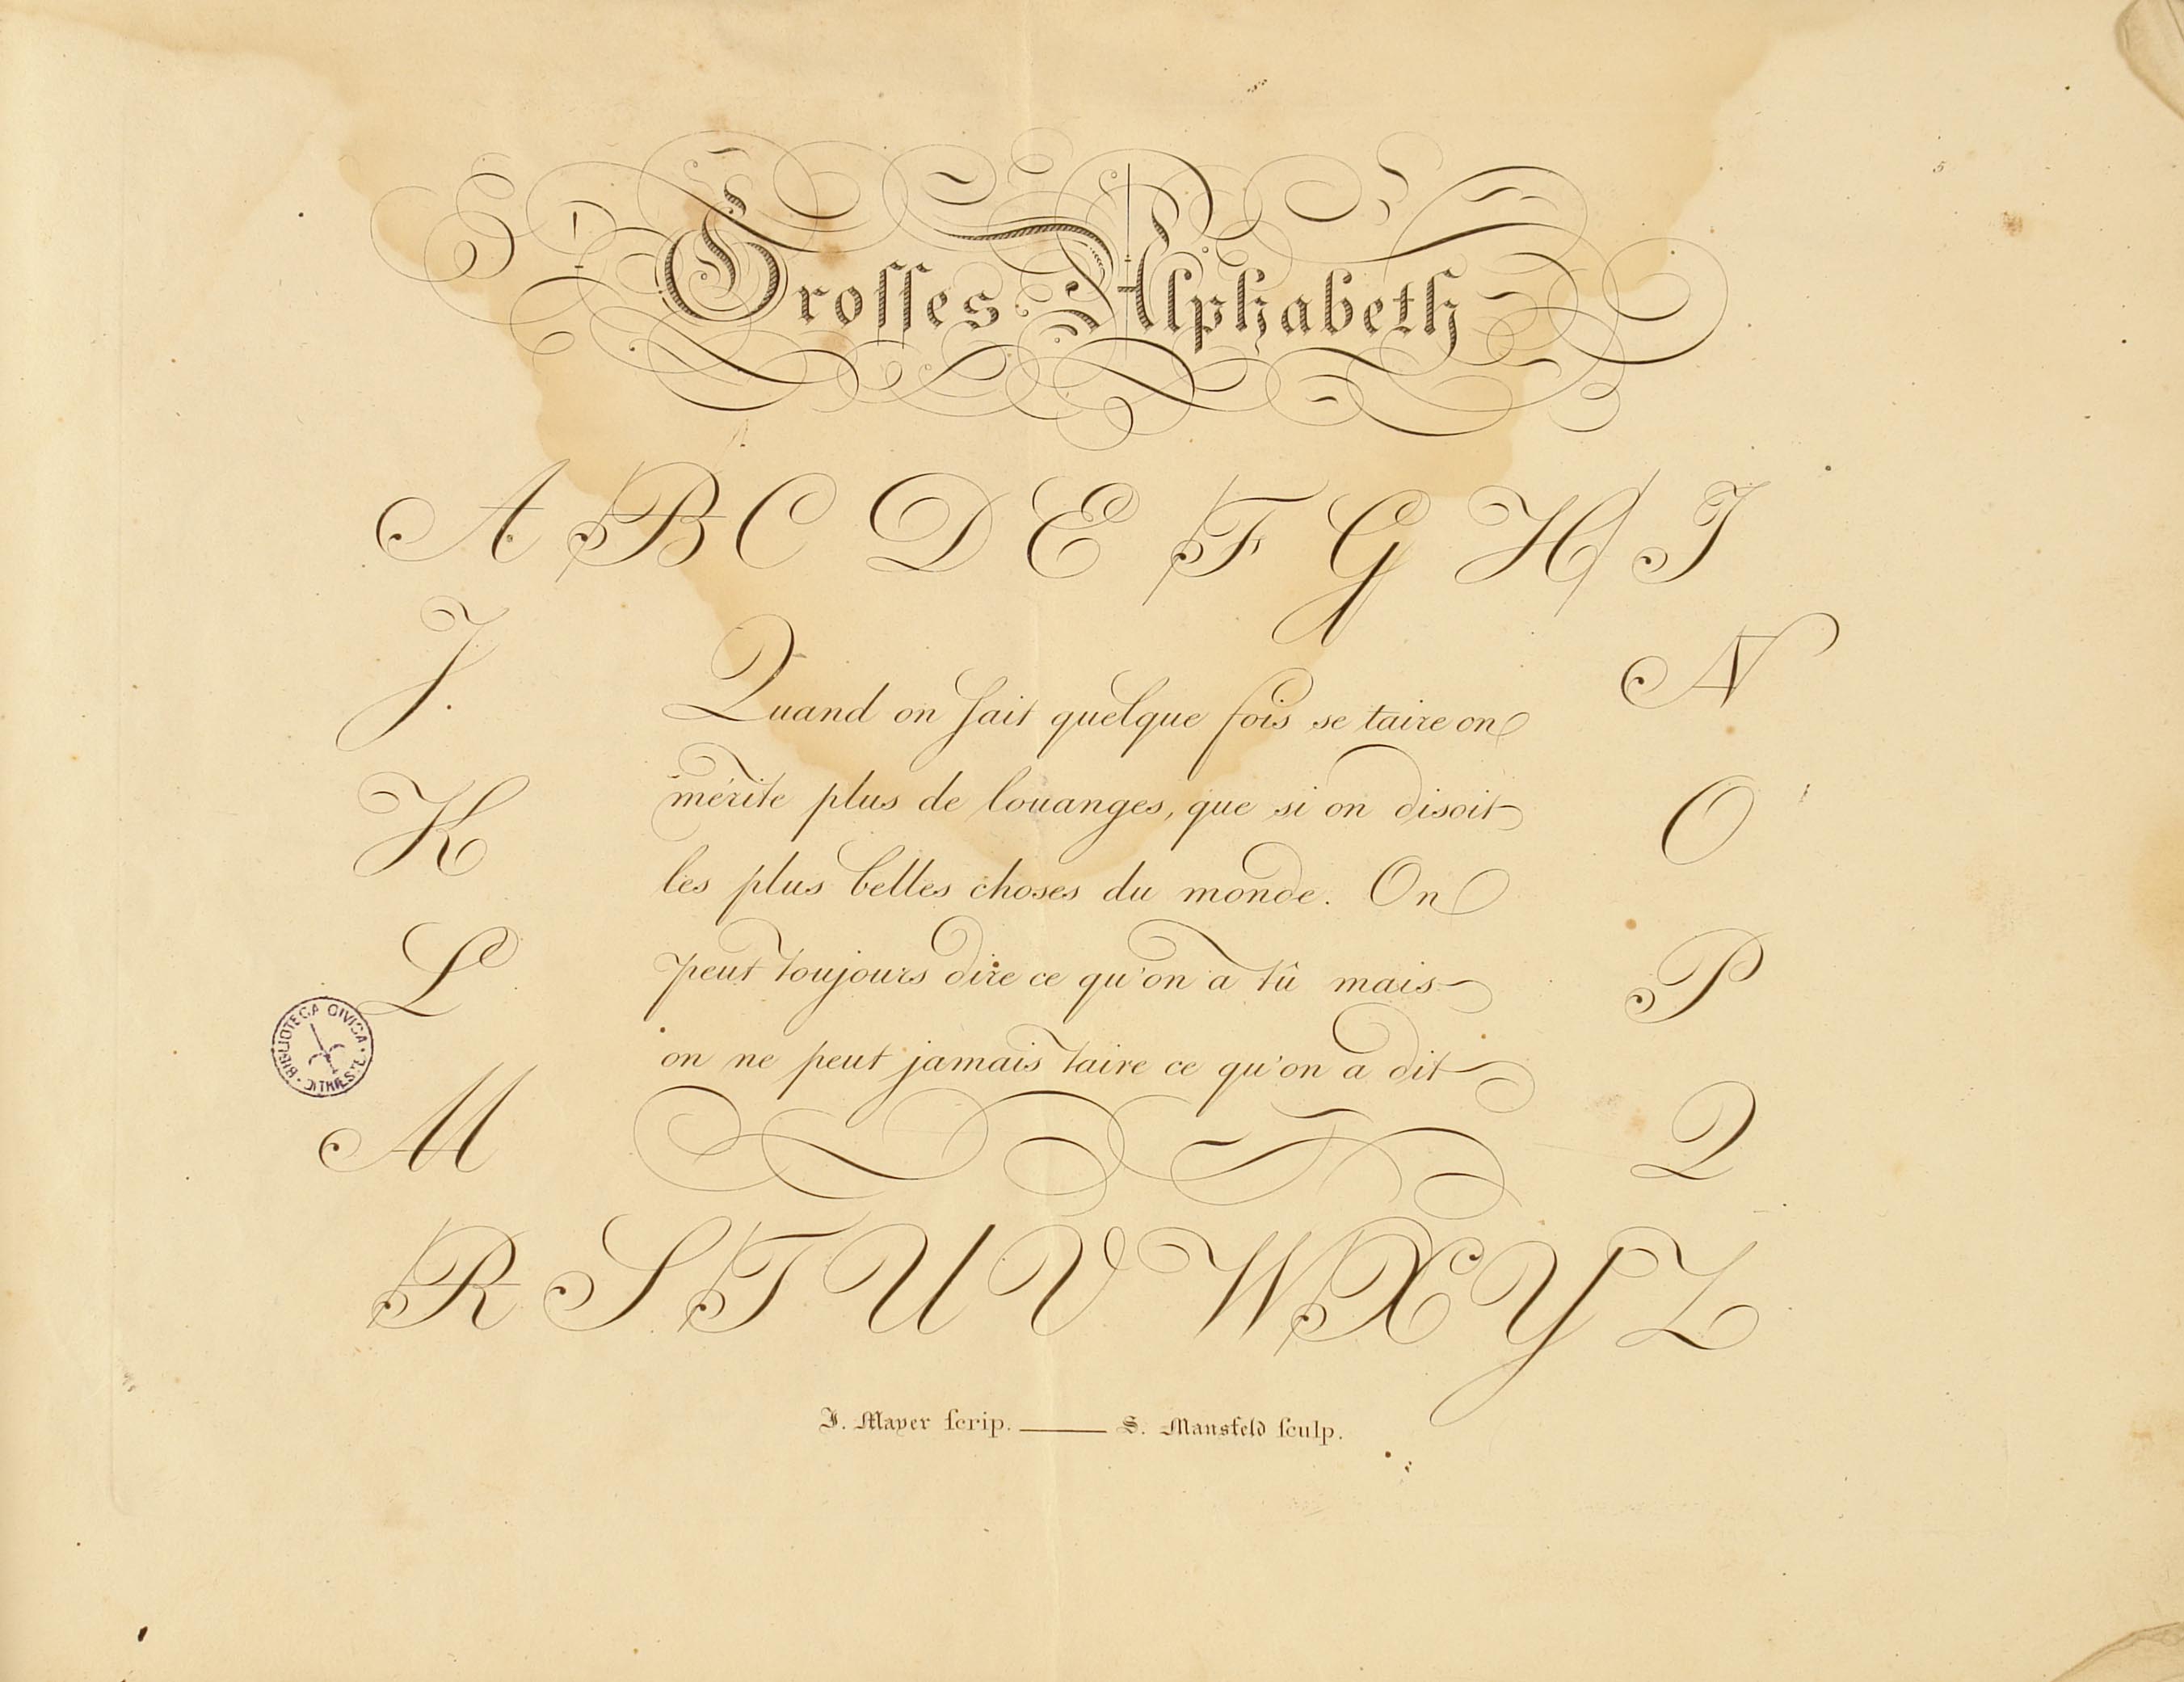 Grosses Alphabeth
A B C D E F G H I
J.
K
L
M
Quand on sait quelque fois se taire on
mérite plus de louanges, que si on disoit
les plus belles choses du monde. On
peut toujours dire ce qu'on a tû mais
on ne peut jamais taire ce qu'on a dit
N
O
P
Q
R S T U V W X Y Z
J. Mayer scrip. — S. Mansfeld sculp.
BIBLIOTECA CIVICA · DI TRIESTE ·
5